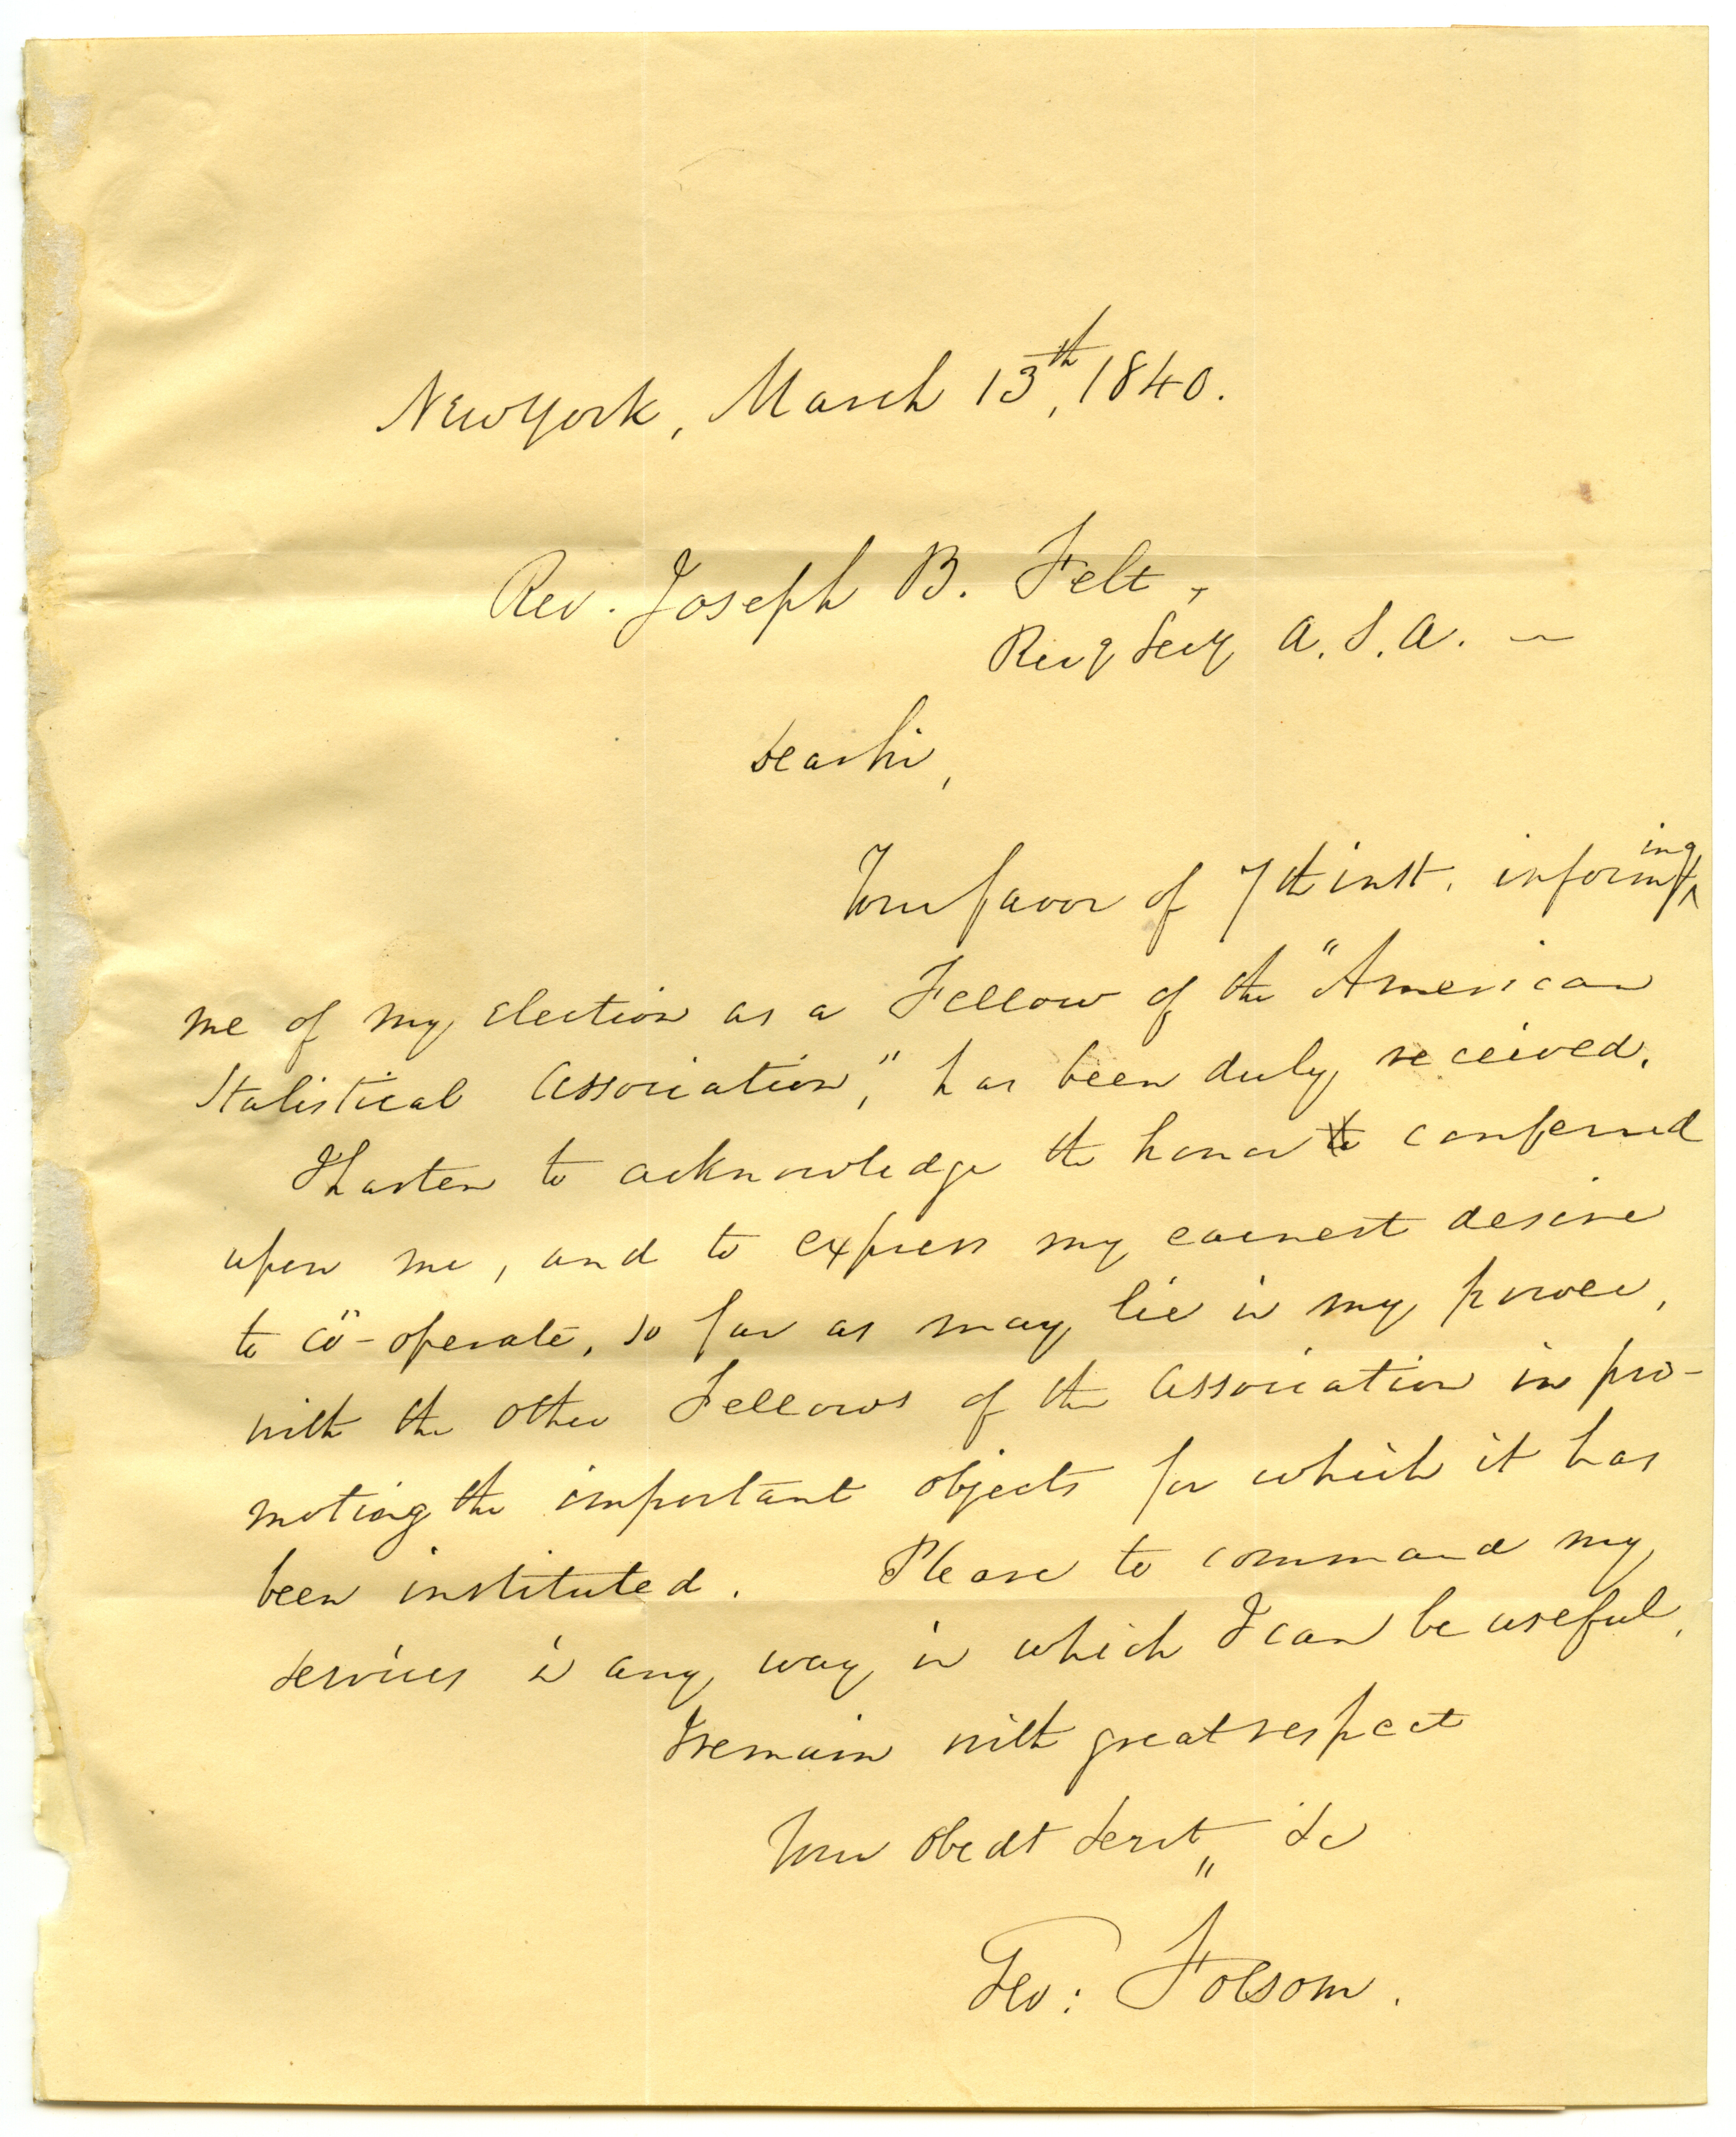 New York, March 13th, 1840.
Rev. Joseph B. Felt,
Recg Secy A. S. A. —
Dear Sir,
Your favor of 7th inst. informing
me of my election as a Fellow of the "American
Statistical Association," has been duly received.
I hasten to acknowledge the honor conferred
upon me, and to express my earnest desire
to cö-operate, so far as may lie in my power,
with the other Fellows of the Association in pro-
moting the important objects for which it has
been instituted. Please to command my
services in any way in which I can be useful.
I remain with great respect
Your obedt servt &c
Geo: Folsom.